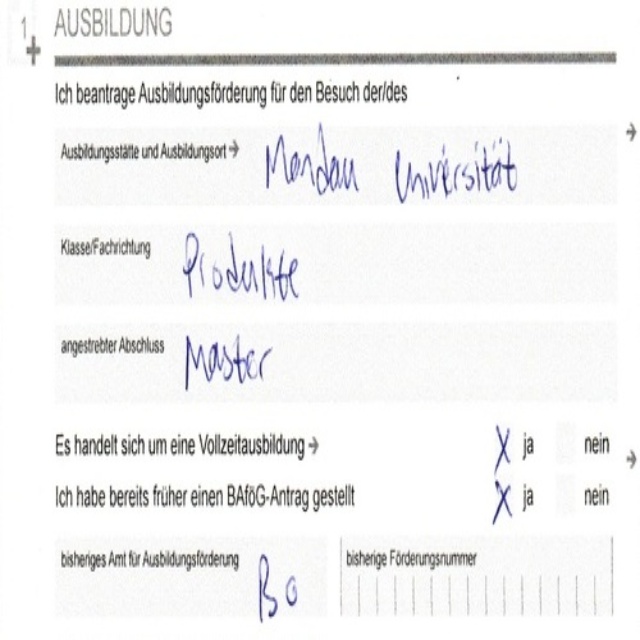 1 AUSBILDUNG
Ich beantrage Ausbildungsförderung für den Besuch der/des
Ausbildungsstätte und Ausbildungsort → Mondau Universität
Klasse/Fachrichtung Produkte
angestrebter Abschluss Master
Es handelt sich um eine Vollzeitausbildung → X ja nein
Ich habe bereits früher einen BAföG-Antrag gestellt X ja nein
bisheriges Amt für Ausbildungsförderung Bo bisherige Förderungsnummer